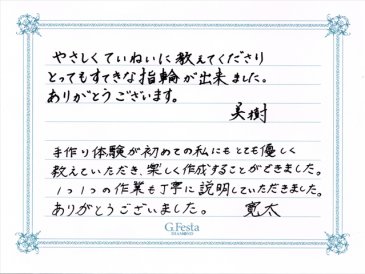 やさしくていねいに教えてくださり
とってもすてきな指輪が出来ました。
ありがとうございます。
美樹
手作り体験が初めての私にもとても優しく
教えていただき、楽しく作成することができました。
1つ1つの作業も丁寧に説明していただきました。
ありがとうございました。 寛太
G.Festa
DIAMOND